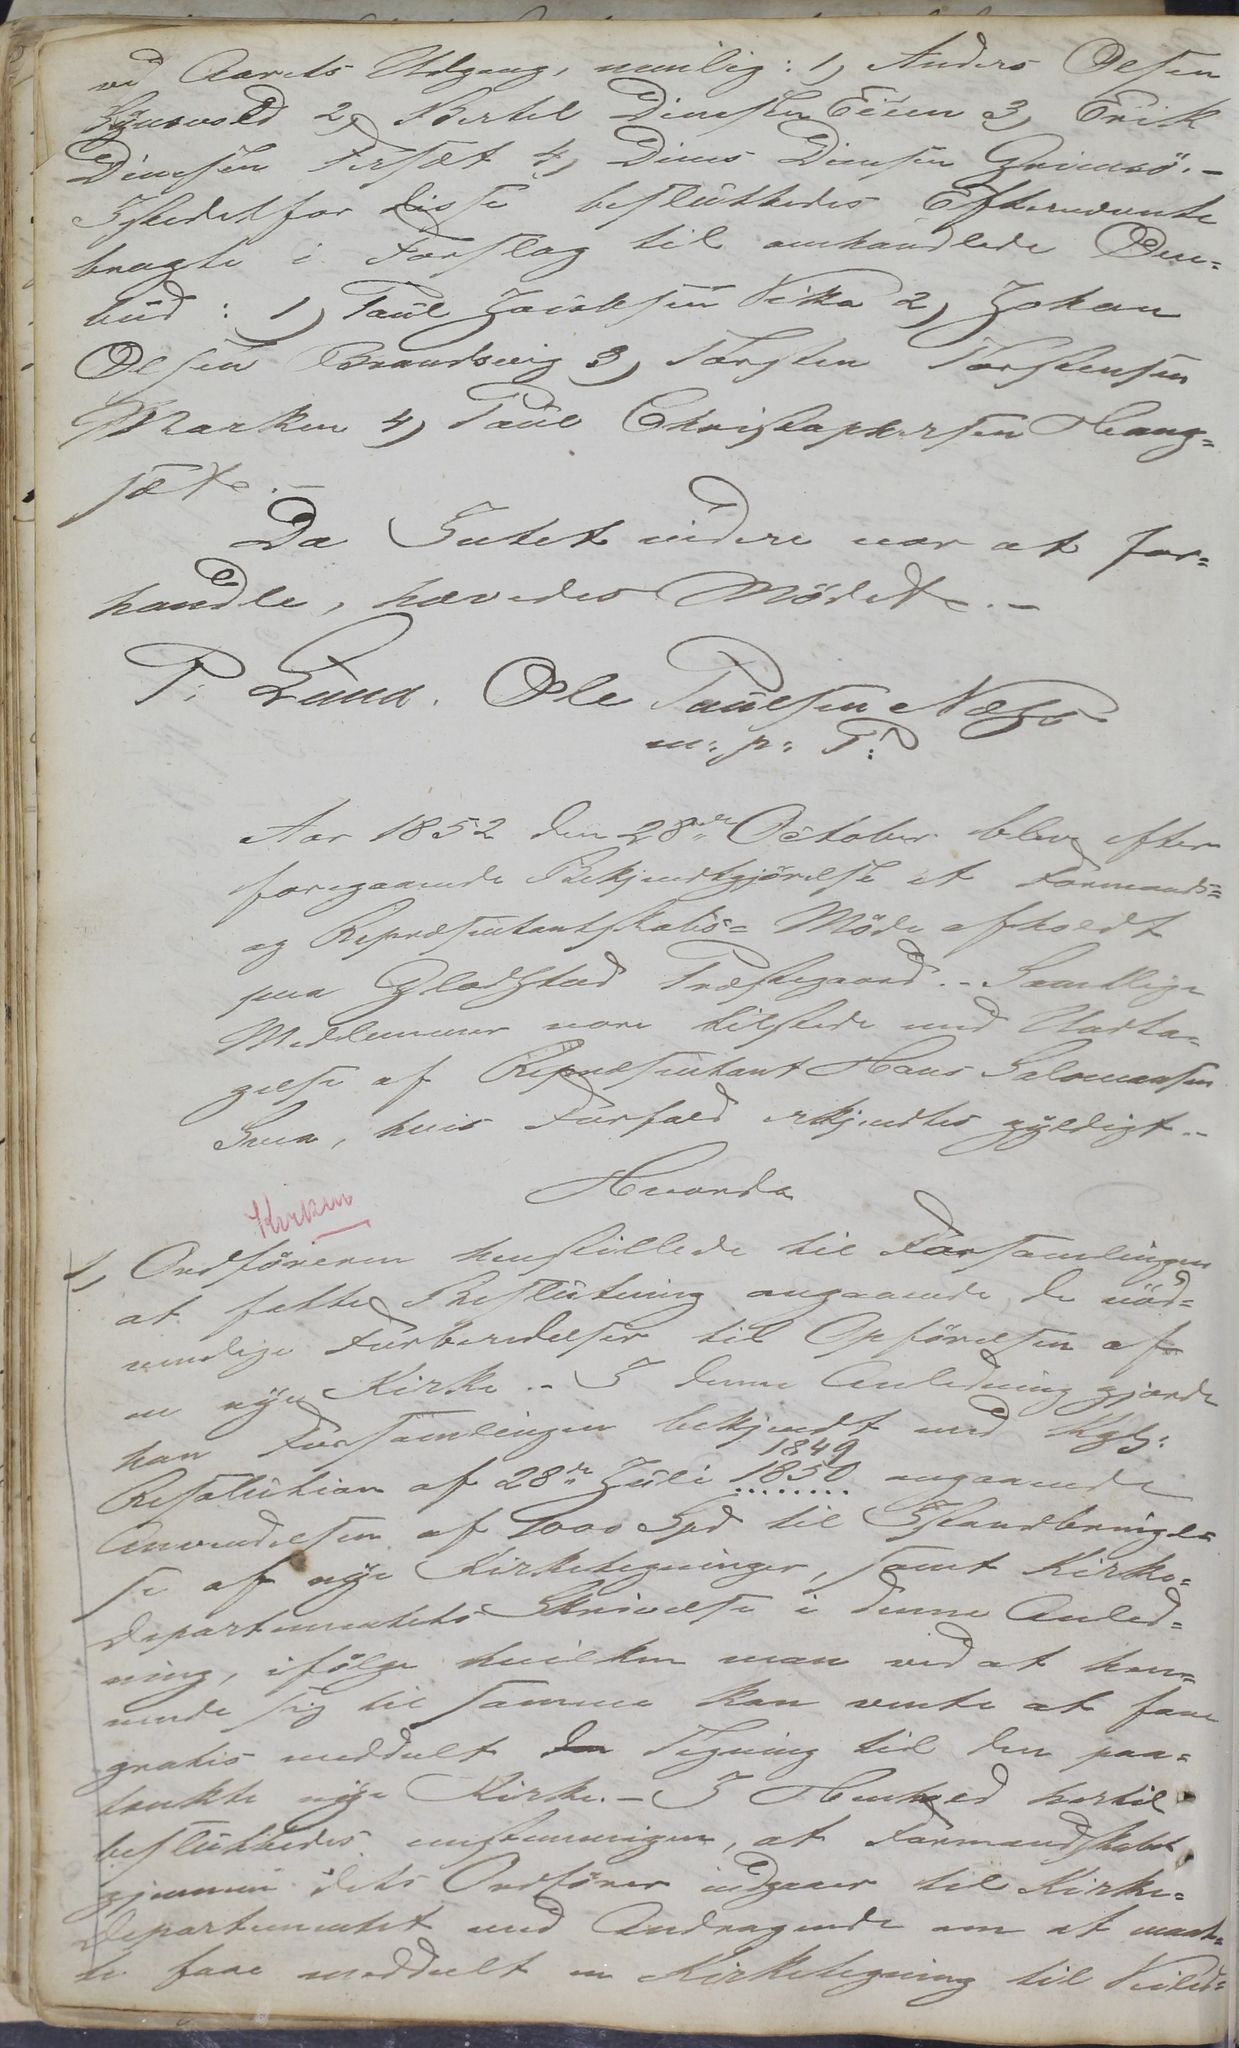 ved Aarets Udgang, nemlig: 1, Anders Olsen
2, Bertel Dinesen Eien 3, Erik
Dinesen 4, Dines Dinesen Grimsö. -
Istedetfor disse besluttedes Efternævnte
bragte i Forslag til omhandlede Om-
bud: 1) Paul Jacobsen Vika 2, Johan
Olsen Brandsvig 3, Torsten Torstensen
Marken 4) Paul Christophersen Haug-
sæt. -
Da Intet videre var at for-
handle, hævedes Mödet. -
P. Lund. Ole Paulsen Næss
m: p: P:
Aar 1852 den 28de October blev efter
foregaaende Bekjendtgjörelse et Formands-
og Repræsentantskabs- Möde afholdt
paa Gladstad Præstegaard. - Samtlige
Medlemmer vare tilstede med Undta-
gelse af Repræsentant Hans Salomonsen
, hvis Forfald erkjendtes gyldigt. -
Hvorda
Kirken
1, Ordföreren henstillede til Forsamlingen
at fatte Beslutning angaaende de nöd-
vendige Forberedelser til Opförelsen af
en nye Kirke. - I denne Anledning gjorde
han Forsamlingen bekjendt med Kgl:
1849
Resolution af 28de Juli 1850 angaaende
Anvendelsen af 1000 Spd til Istandbringel-
se af nye Kirketegninger, samt Kirke-
departementets Skrivelse i denne Anled-
ning, ifölge hvilken man ved at hen-
vende sig til samme kan vente at faae
gratis meddelt den Tegning til den paa-
tænkte nye Kirke. - I Henhold hertil
besluttedes enstemmigen, at Formandskabet
gjennem dets Ordförer indgaaer til Kirke-
departementet med Andragende om at maat-
te faae meddelt en Kirketegning til Veiled-